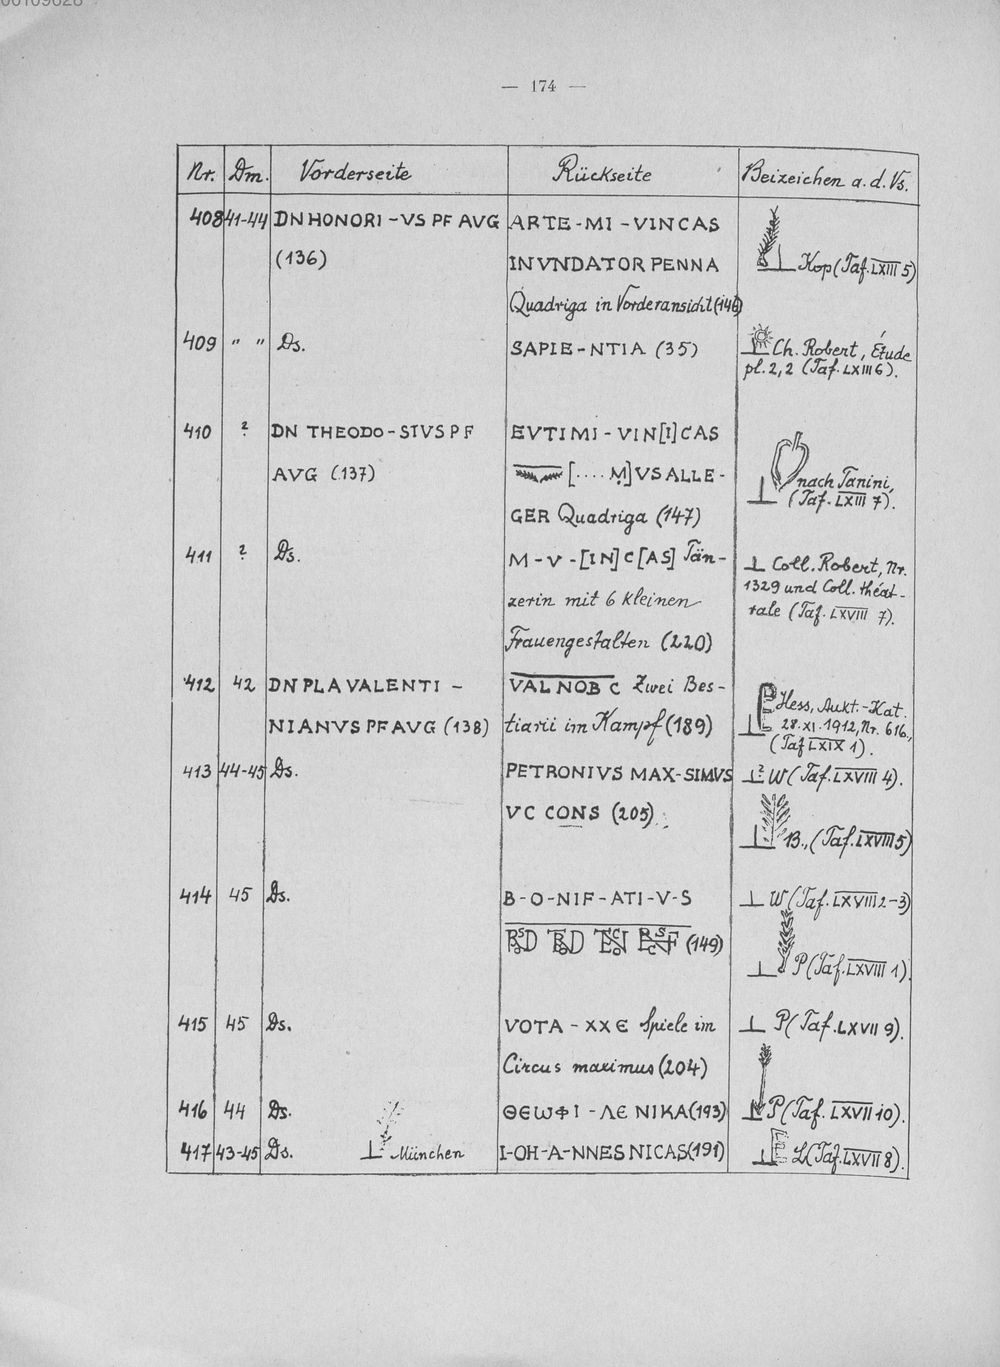 — 174 —
Nr. Dm. Vorderseite Rückseite Beizeichen a. d. Vs.
408 41-44 DN HONORI - VS PF AVG ARTE - MI - VINCAS
(136) INVNDATOR PENNA Kop (Taf. LXIII 5)
Quadriga in Vorderansicht (146)
409 " " Ds. SAPIE - NTIA (35) Ch. Robert, Étude
pl. 2, 2 (Taf. LXIII 6).
410 ? DN THEODO - SIVS P F EVTIMI - VIN[I]CAS
AVG (137) [.... M]VS ALLE- nach Tanini,
GER Quadriga (147) (Taf. LXIII 7).
411 ? Ds. M - V - [IN]C[AS] Tän- Coll. Robert, Nr.
zerin mit 6 kleinen 1329 und Coll. théat-
Frauengestalten (220) rale (Taf. LXVIII 7).
412 42 DN PLA VALENTI - VAL NOB C Zwei Bes- Hess, Aukt.-Kat.
NIANVS PF AVG (138) tiarii im Kampf (189) 28. XI. 1912, Nr. 616,
(Taf LXIX 1).
413 44-45 Ds. PETRONIVS MAX-SIMVS ? W (Taf. LXVIII 4).
VC CONS (205) B., (Taf. LXVIII 5)
414 45 Ds. B-O-NIF-ATI-V-S W (Taf. LXVIII 2-3)
(149) P (Taf. LXVIII 1).
415 45 Ds. VOTA - XX Є Spiele im P (Taf. LXVII 9).
Circus maximus (204)
416 44 Ds. ΘЄωΦΙ - ΛЄ NIKA (193) P (Taf. LXVII 10).
417 43-45 Ds. München I-OH-A-NNES NICAS (191) L (Taf. LXVII 8).